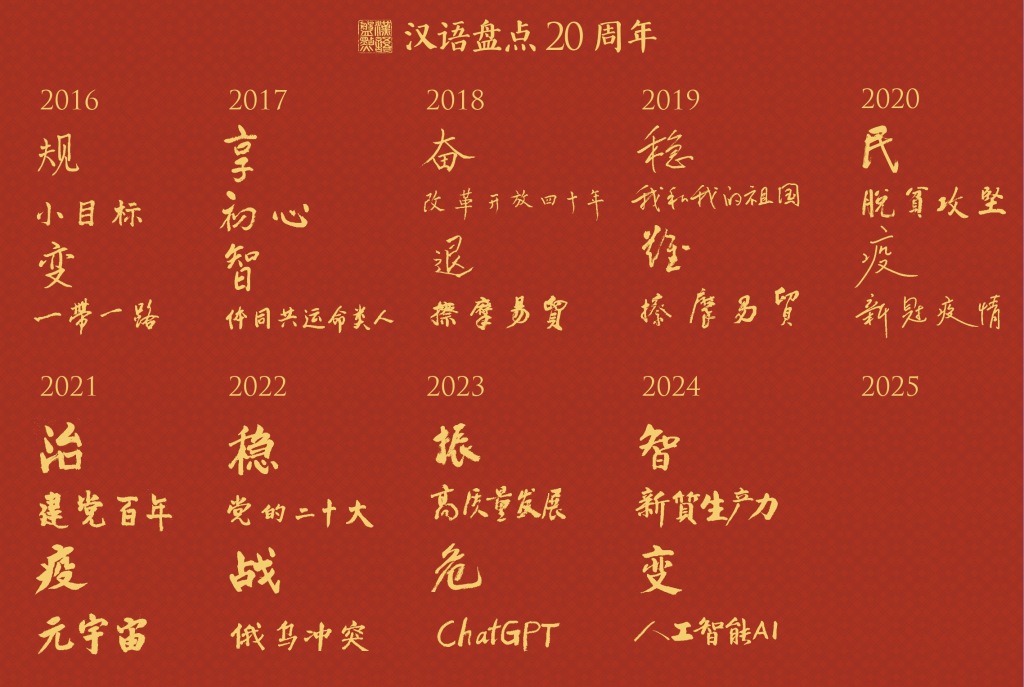 漢語盤點 汉语盘点 20 周年
2016 2017 2018 2019 2020
规 享 奋 稳 民
小目标 初心 改革开放四十年 我和我的祖国 脱貧攻坚
变 智 退 难 疫
一帶一路 人类命运共同体 贸易摩擦 贸易摩擦 新冠疫情
2021 2022 2023 2024 2025
治 稳 振 智
建党百年 党的二十大 高质量发展 新質生产力
疫 战 危 变
元宇宙 俄乌冲突 ChatGPT 人工智能AI